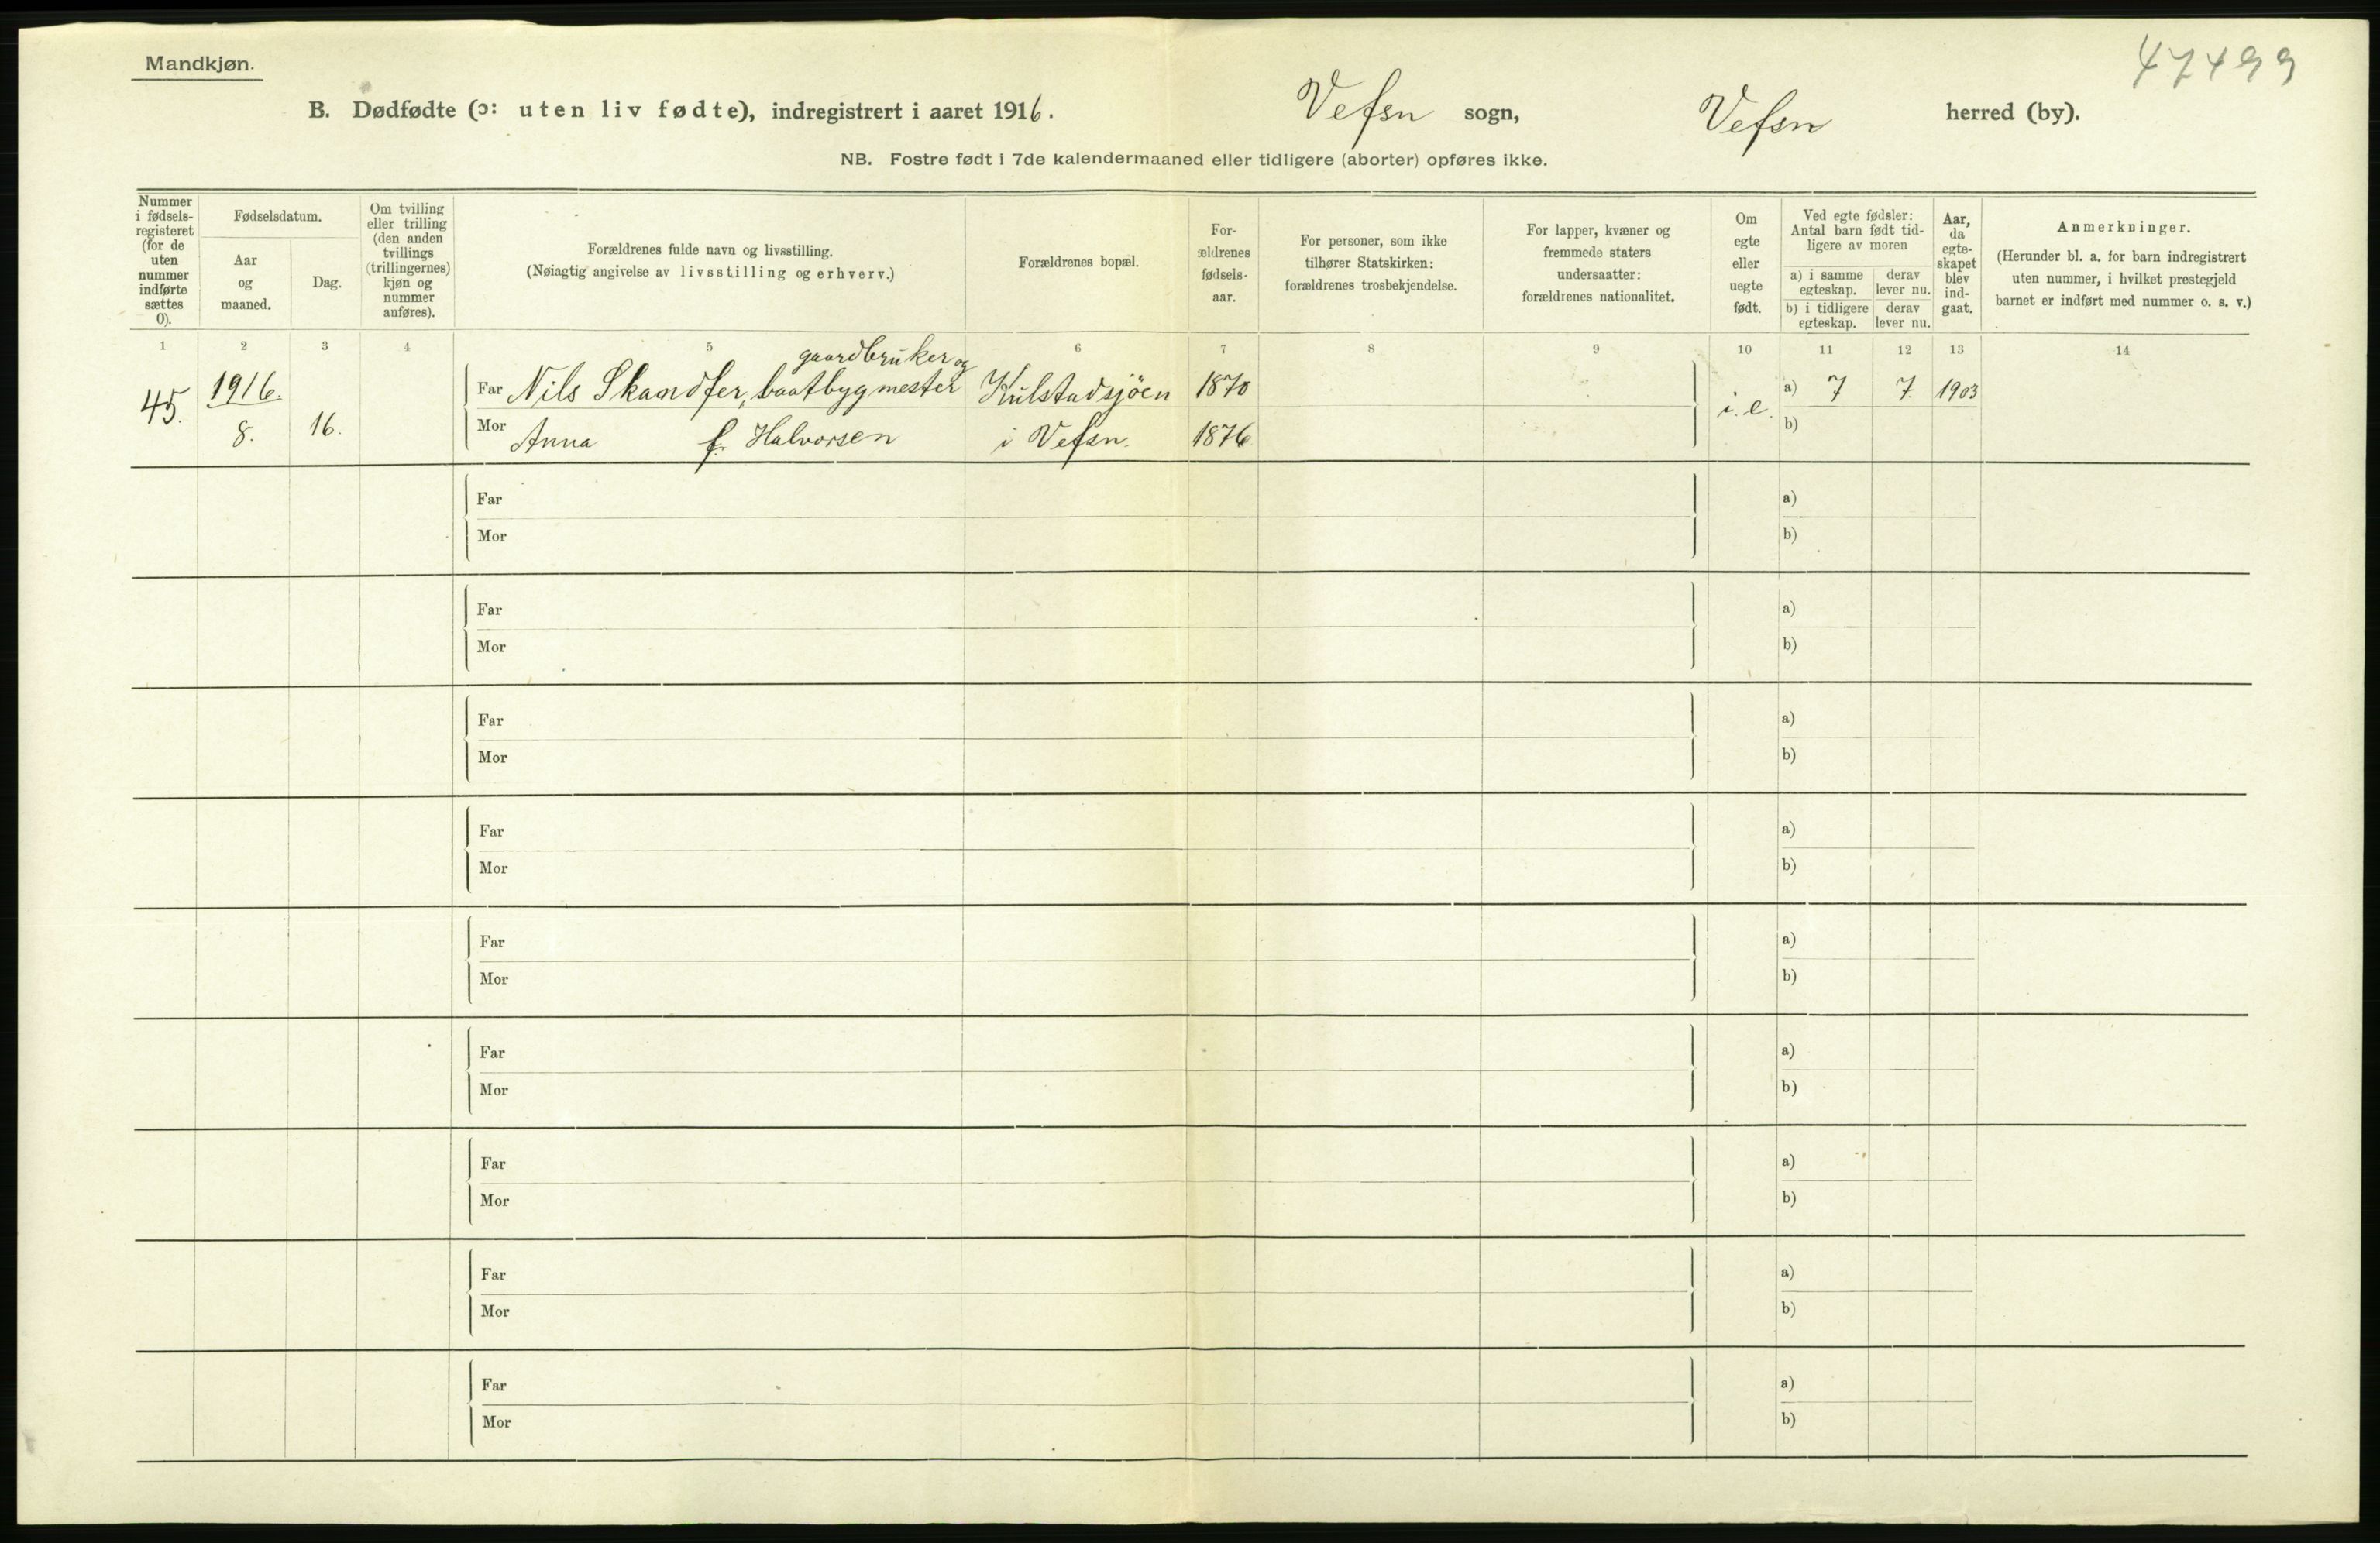 Mandkjøn.
47499
B. Dødfødte (ɔ: uten liv fødte), indregistrert i aaret 1916. Vefsn sogn, Vefsn herred (by).
NB. Fostre født i 7de kalendermaaned eller tidligere (aborter) opføres ikke.
Nummer
i fødsels-
registeret
(for de
uten
nummer
indførte
sættes
0).
Fødselsdatum.
Aar
og
maaned.
Dag.
Om tvilling
eller trilling
(den anden
tvillings
(trillingernes)
kjøn og
nummer
anføres).
Forældrenes fulde navn og livsstilling.
(Nøiagtig angivelse av livsstilling og erhverv.)
Forældrenes bopæl.
For-
ældrenes
fødsels-
aar.
For personer, som ikke
tilhører Statskirken:
forældrenes trosbekjendelse.
For lapper, kvæner og
fremmede staters
undersaatter:
forældrenes nationalitet.
Om
egte
eller
uegte
født.
Ved egte fødsler:
Antal barn født tid-
ligere av moren
a) i samme
egteskap.
derav
lever nu.
b) i tidligere
egteskap.
derav
lever nu.
Aar,
da
egte-
skapet
blev
ind-
gaat.
Anmerkninger.
(Herunder bl. a. for barn indregistrert
uten nummer, i hvilket prestegjeld
barnet er indført med nummer o. s. v.)
1 2 3 4 5 6 7 8 9 10 11 12 13 14
gaardbruker og
45. 1916. 8. 16.
Far Nils Skandfer, baatbygmester Kulstadsjöen 1870 i. e. a) 7 7. 1903
Mor Anna f. Halvorsen i Vefsn. 1876 b)
Far a)
Mor b)
Far a)
Mor b)
Far a)
Mor b)
Far a)
Mor b)
Far a)
Mor b)
Far a)
Mor b)
Far a)
Mor b)
Far a)
Mor b)
Far a)
Mor b)